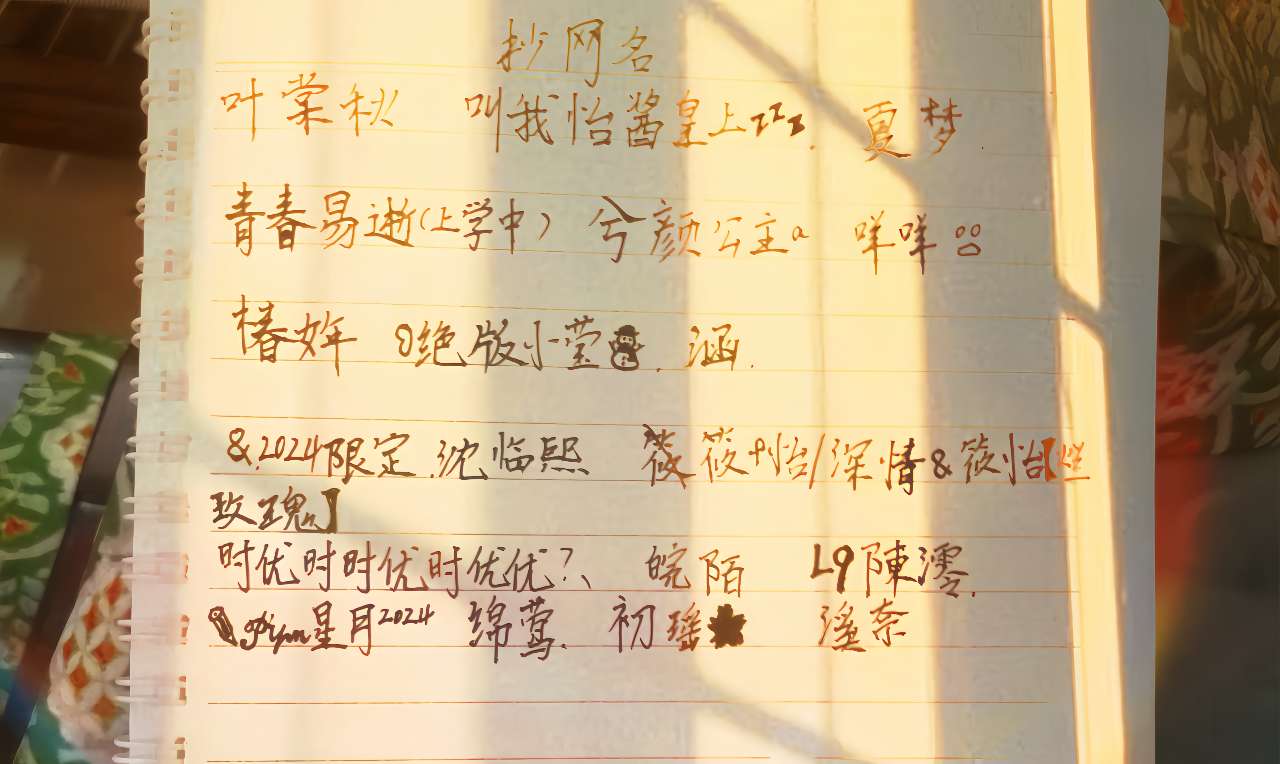 抄网名
叶棠秋 叫我怡酱皇上zzz. 夏梦.
青春易逝(上学中) 兮颜公主a 咩咩
椿年 绝版小莹. 涵.
&.2024限定.沈临熙 筱筱怡/深情&筱怡【烂
玫瑰】
时优时时优时优优?、 皖陌 L9陳澪.
星月2024 绵莺. 初瑶 瑤奈